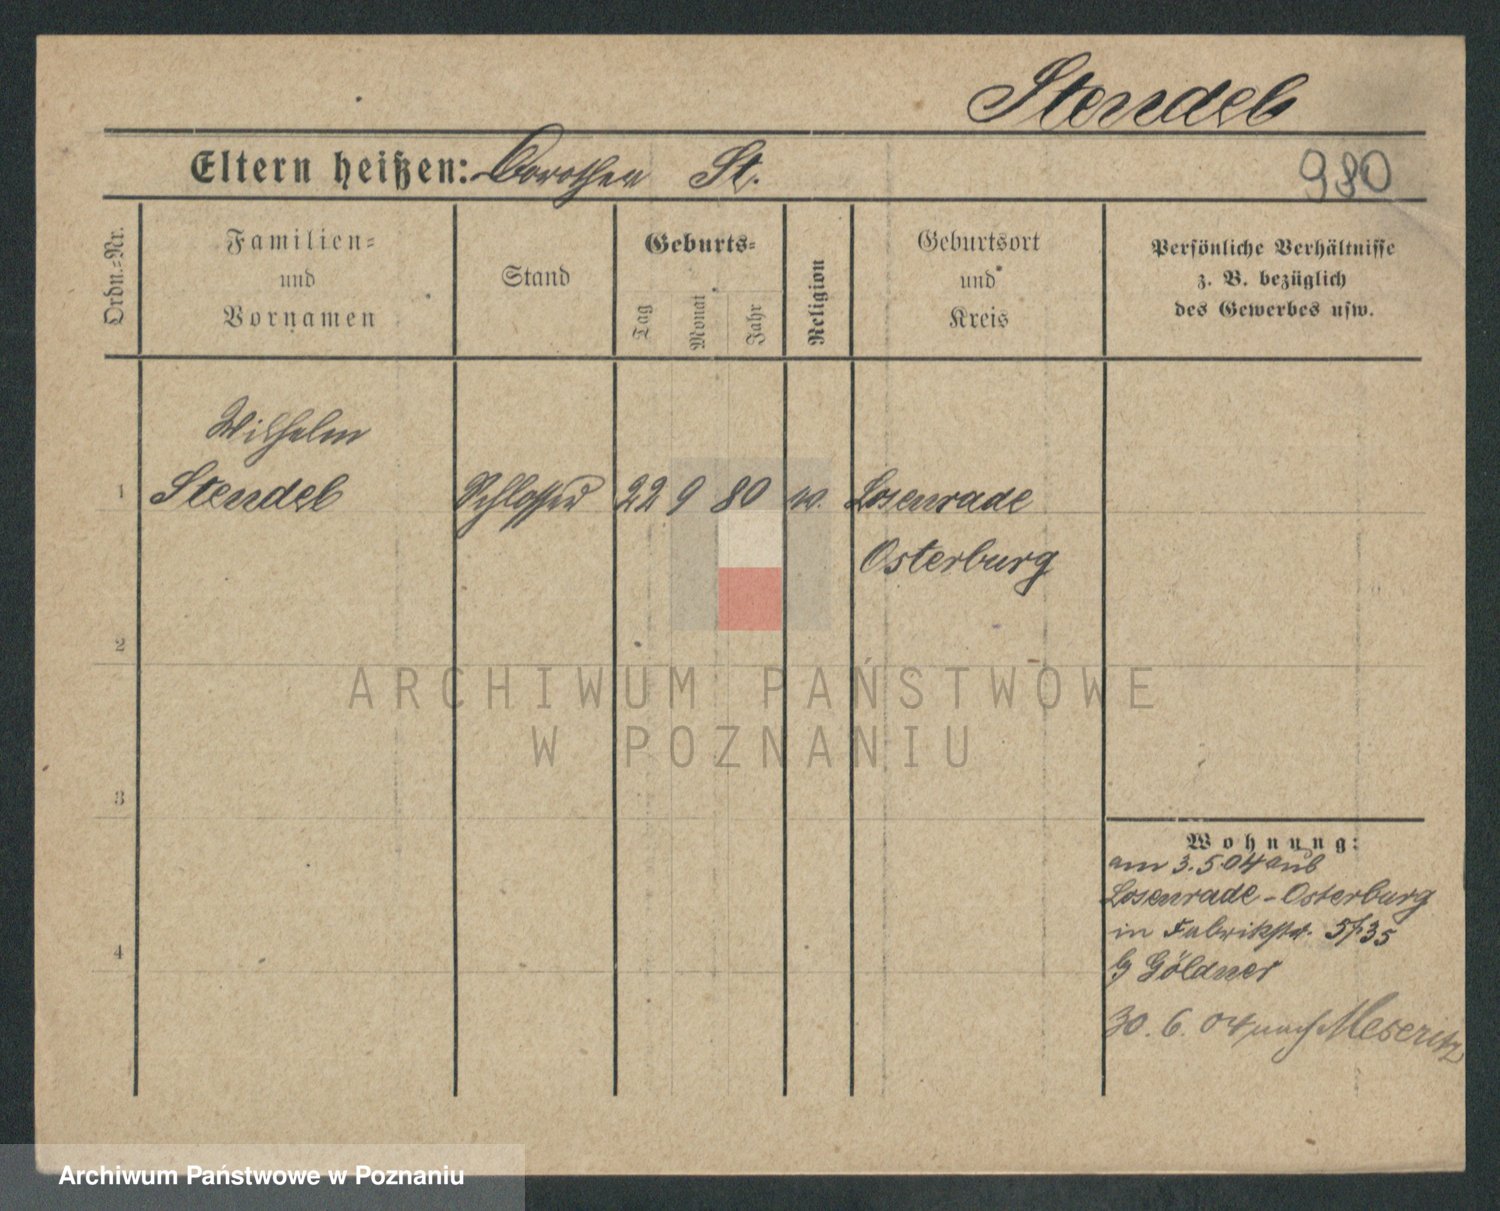 Stendel
Eltern heißen: Dorothea St.
980
Ordn.=Nr.
Familien=
und
Vornamen
Stand
Geburts=
Tag
Monat
Jahr
Religion
Geburtsort
und
Kreis
Persönliche Verhältnisse
z. B. bezüglich
des Gewerbes usw.
Wilhelm
1 Stendel Schlosser 22 9 80 Losenrade
Osterburg
2
ARCHIWUM PAŃSTWOWE
W POZNANIU
3
Wohnung:
am 3.5.04 aus
Losenrade - Osterburg
in Fabrikstr. 35
4
Göldner
30. 6. 04 nach Meseritz
Archiwum Państwowe w Poznaniu